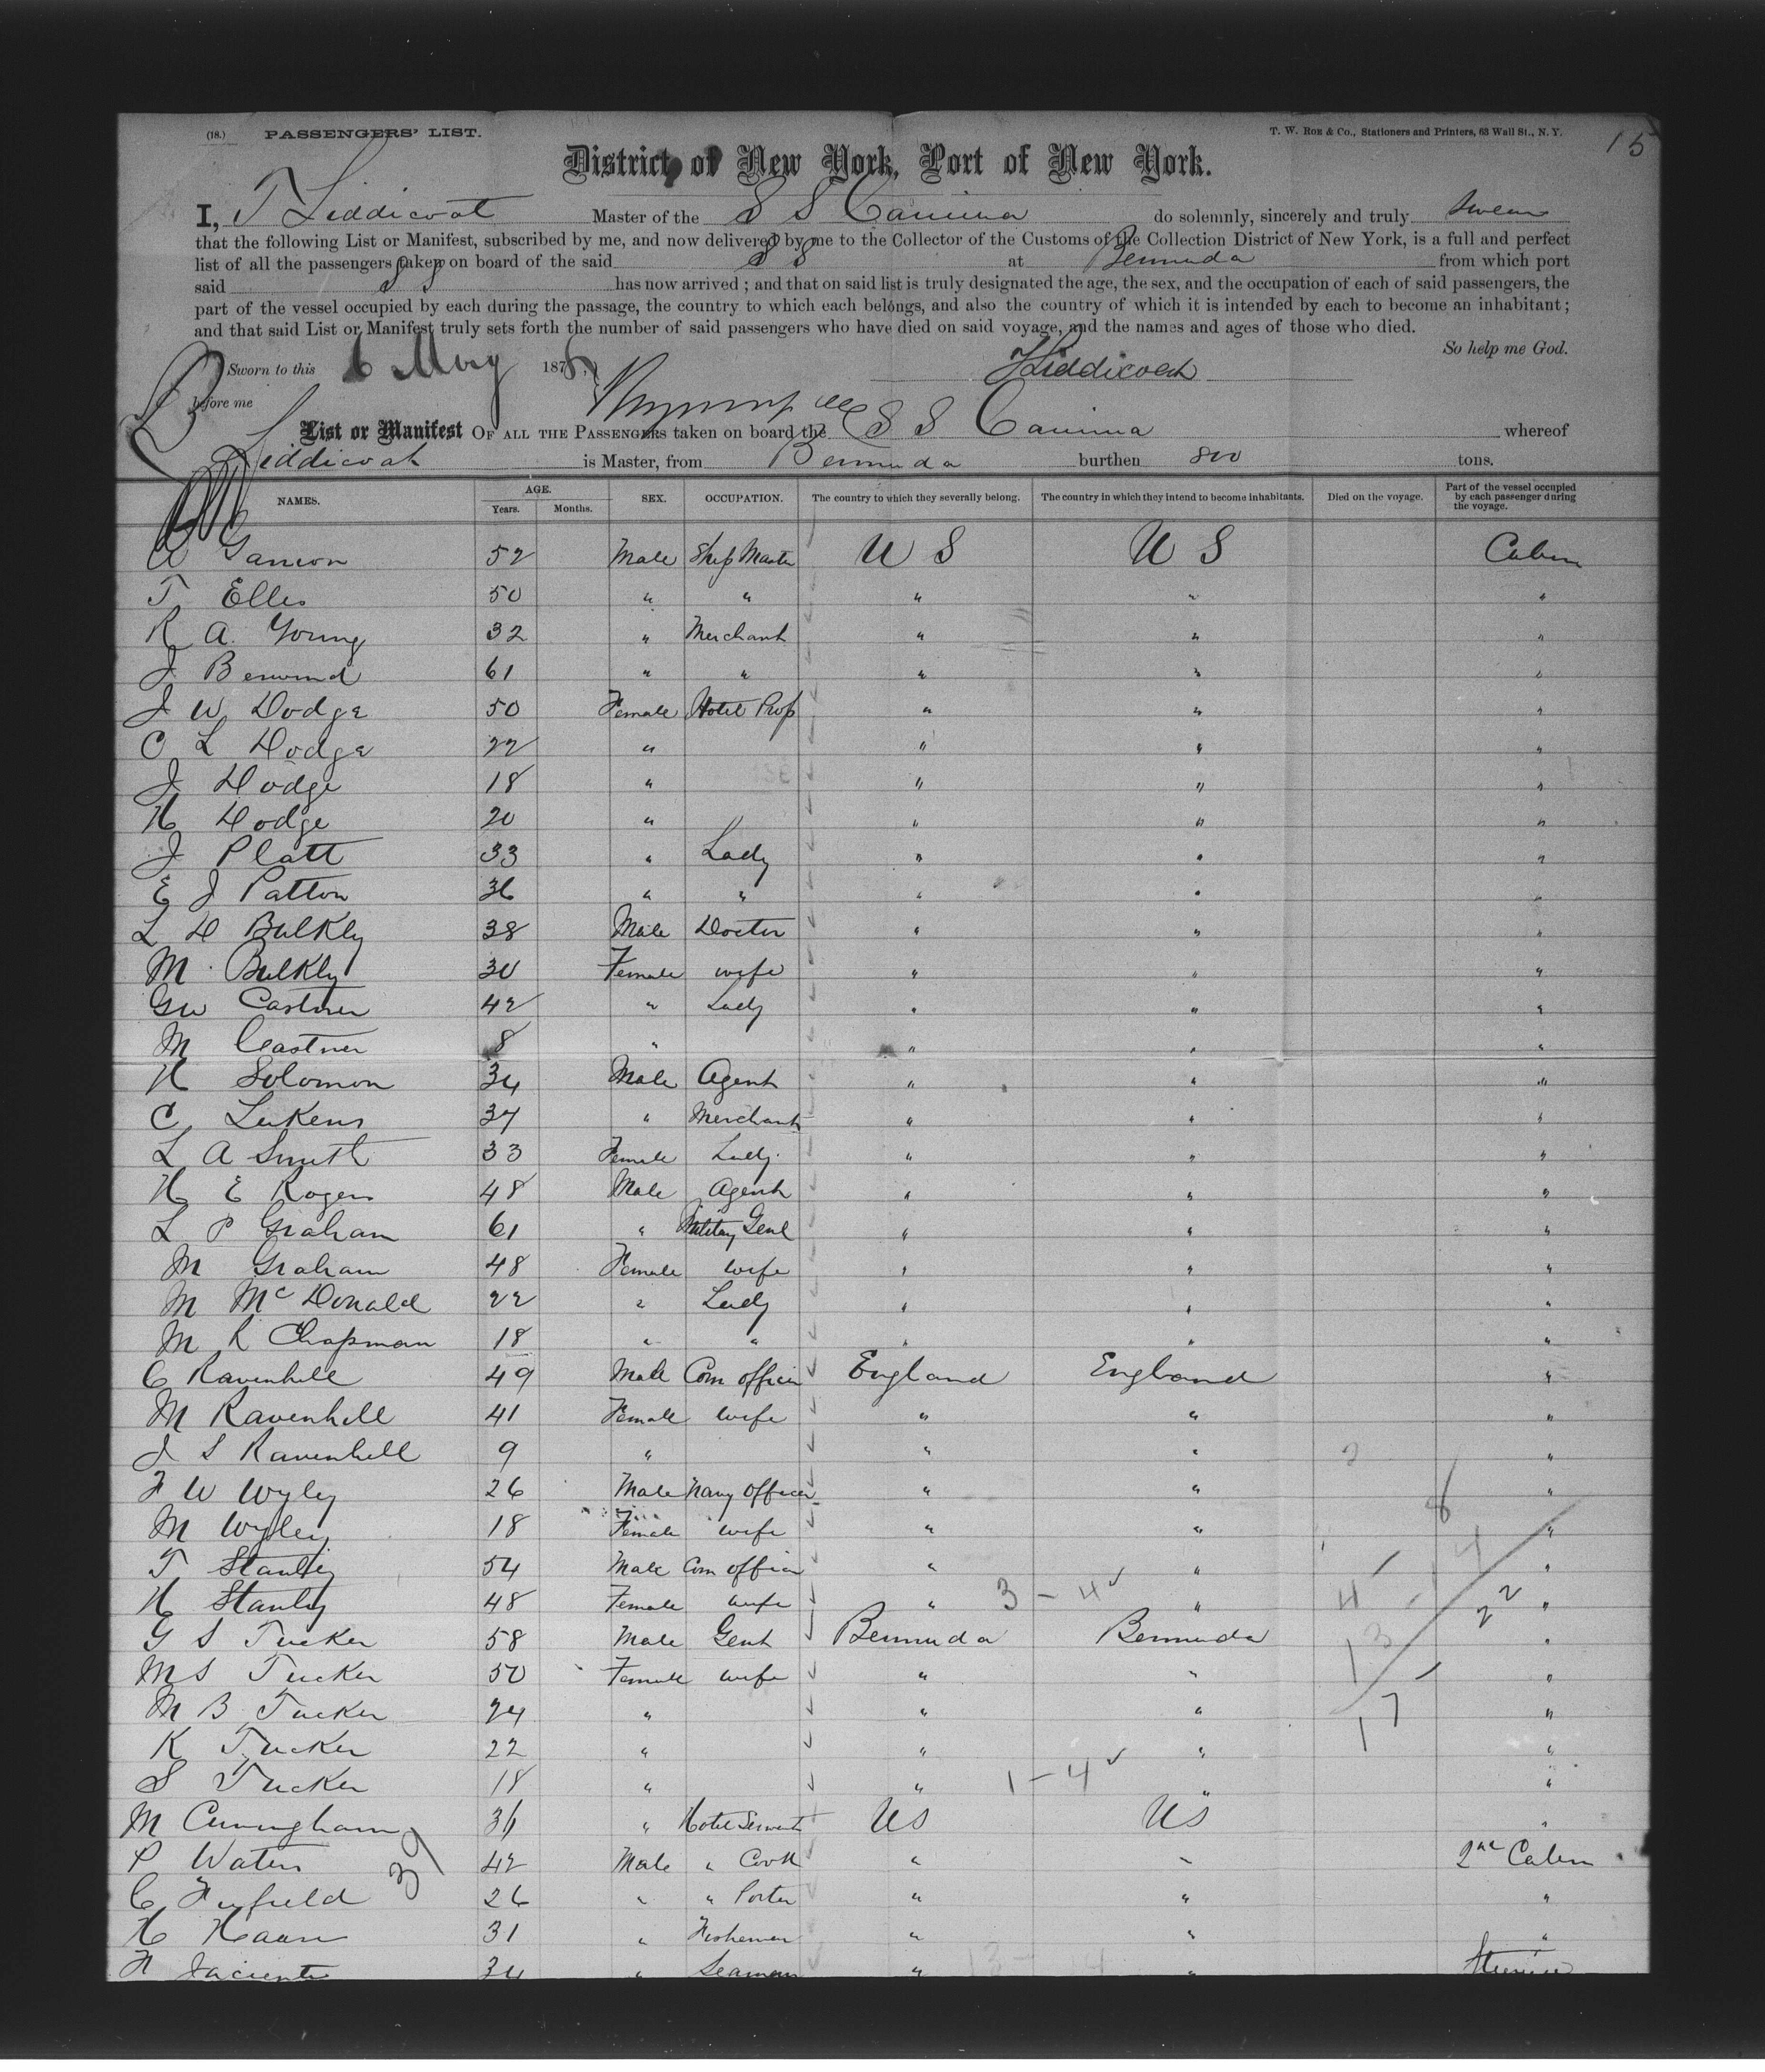 (18.) PASSENGERS' LIST. T. W. Roe & Co., Stationers and Printers, 63 Wall St., N. Y. 15
District of New York, Port of New York.
I, T Liddicoat Master of the S S Canima do solemnly, sincerely and truly swear
that the following List or Manifest, subscribed by me, and now delivered by me to the Collector of the Customs of the Collection District of New York, is a full and perfect
list of all the passengers taken on board of the said S S at Bermuda from which port
said S S has now arrived ; and that on said list is truly designated the age, the sex, and the occupation of each of said passengers, the
part of the vessel occupied by each during the passage, the country to which each belongs, and also the country of which it is intended by each to become an inhabitant ;
and that said List or Manifest truly sets forth the number of said passengers who have died on said voyage, and the names and ages of those who died.
So help me God.
Sworn to this 6 May 1876, T Liddicoat
before me
List or Manifest OF ALL THE PASSENGERS taken on board the S S Canima whereof
Liddicoat is Master, from Bermuda burthen 800 tons.
NAMES. AGE. Years. Months. SEX. OCCUPATION. The country to which they severally belong. The country in which they intend to become inhabitants. Died on the voyage. Part of the vessel occupied by each passenger during the voyage.
52 Male Ship Master U S U S Cabin
T Elles 50 " " " " "
R A Young 32 " Merchant " " "
J Berwind 61 " " " " "
J W Dodge 50 Female Hotel Prop " " "
C L Dodge 22 " " " "
J Dodge 18 " " " "
H Dodge 20 " " " "
J Platt 33 " Lady " " "
E J Patton 36 " " " " "
L D Bulkly 38 Male Doctor " " "
M Bulkly 30 Female wife " " "
GW Castner 42 " Lady " " "
M Castner 8 " " " "
H Solomon 34 Male Agent " " "
C Lukens 37 " Merchant " " "
L A Smith 33 Female Lady " " "
H E Rogers 48 Male Agent " " "
L P Graham 61 " Military Genl " " "
M Graham 48 Female wife " " "
M McDonald 22 " Lady " " "
M R Chapman 18 " " " " "
C Ravenhill 49 Male Com officer England England "
M Ravenhill 41 Female wife " " "
J S Ravenhill 9 " " " 2 "
F W Wyley 26 Male Navy officer " " "
M Wyley 18 Female wife " " "
T Stanley 54 Male Com officer " " "
H Stanley 48 Female wife " 3 - 4 " 4 22 "
G S Tucker 58 Male Gent Bermuda Bermuda 13 "
M S Tucker 50 Female wife " " "
M B Tucker 24 " " " 17 "
K Tucker 22 " " " "
S Tucker 18 " " 1 - 4 " "
M Cuningham 36 " Hotel Servant US US "
P Waters 42 Male " Cook " " 2nd Cabin
39
C Fifield 26 " " Porter " " "
H Haan 31 " Fisherman " " "
34 " Seaman " "